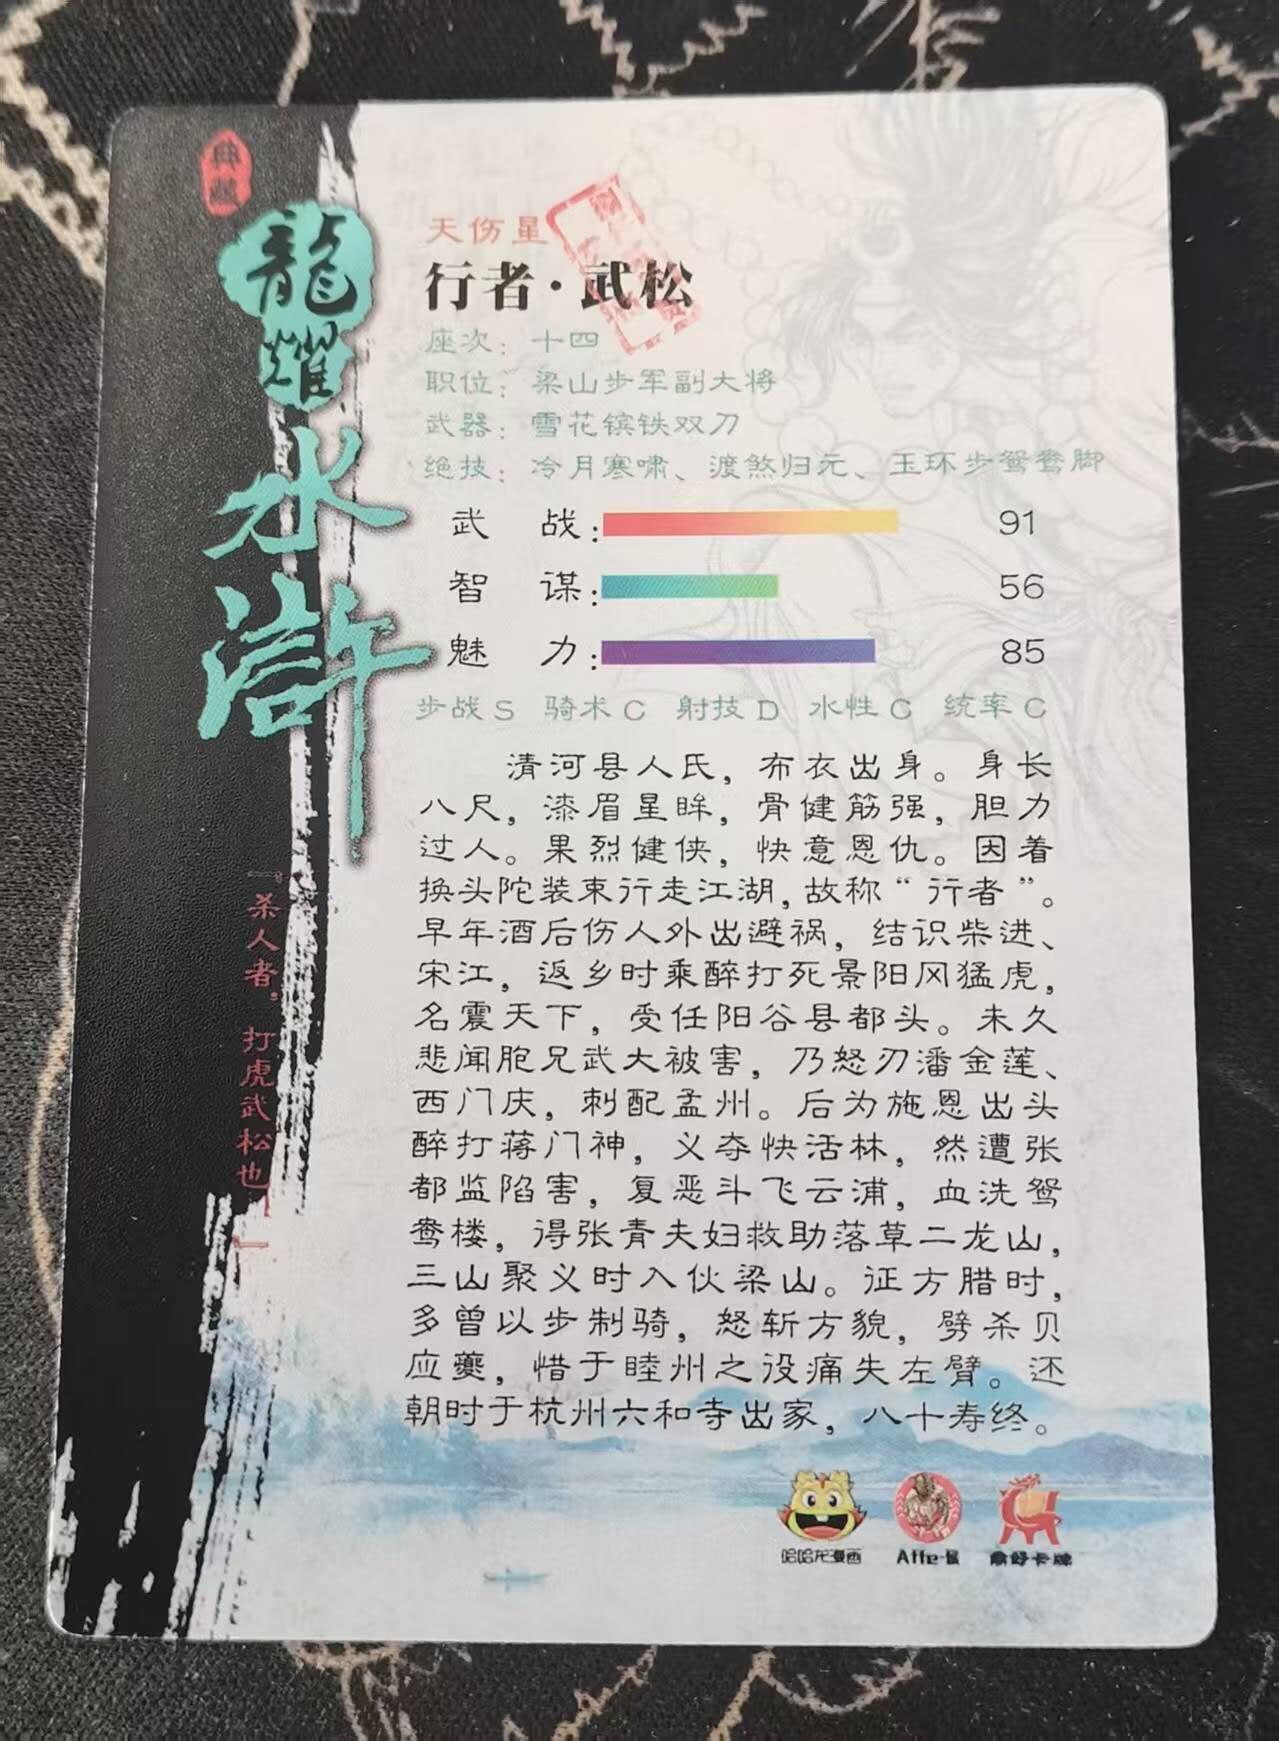 典藏
龍耀
水滸
「杀人者，打虎武松也！」
天伤星
行者·武松
座次：十四
职位：梁山步军副大将
武器：雪花镔铁双刀
绝技：冷月寒啸、渡煞归元、玉环步鸳鸯脚
武 战：91
智 谋：56
魅 力：85
步战S 骑术C 射技D 水性C 统率C
清河县人氏，布衣出身。身长
八尺，漆眉星眸，骨健筋强，胆力
过人。果烈健侠，快意恩仇。因着
换头陀装束行走江湖，故称“行者”。
早年酒后伤人外出避祸，结识柴进、
宋江，返乡时乘醉打死景阳风猛虎，
名震天下，受任阳谷县都头。未久
悲闻胞兄武大被害，乃怒刃潘金莲、
西门庆，刺配孟州。后为施恩出头
醉打蒋门神，义夺快活林，然遭张
都监陷害，复恶斗飞云浦，血洗鸳
鸯楼，得张青夫妇救助落草二龙山，
三山聚义时入伙梁山。征方腊时，
多曾以步制骑，怒斩方貌，劈杀贝
应夔，惜于睦州之役痛失左臂。还
朝时于杭州六和寺出家，八十寿终。
哈哈龙漫画
鼎好卡牌